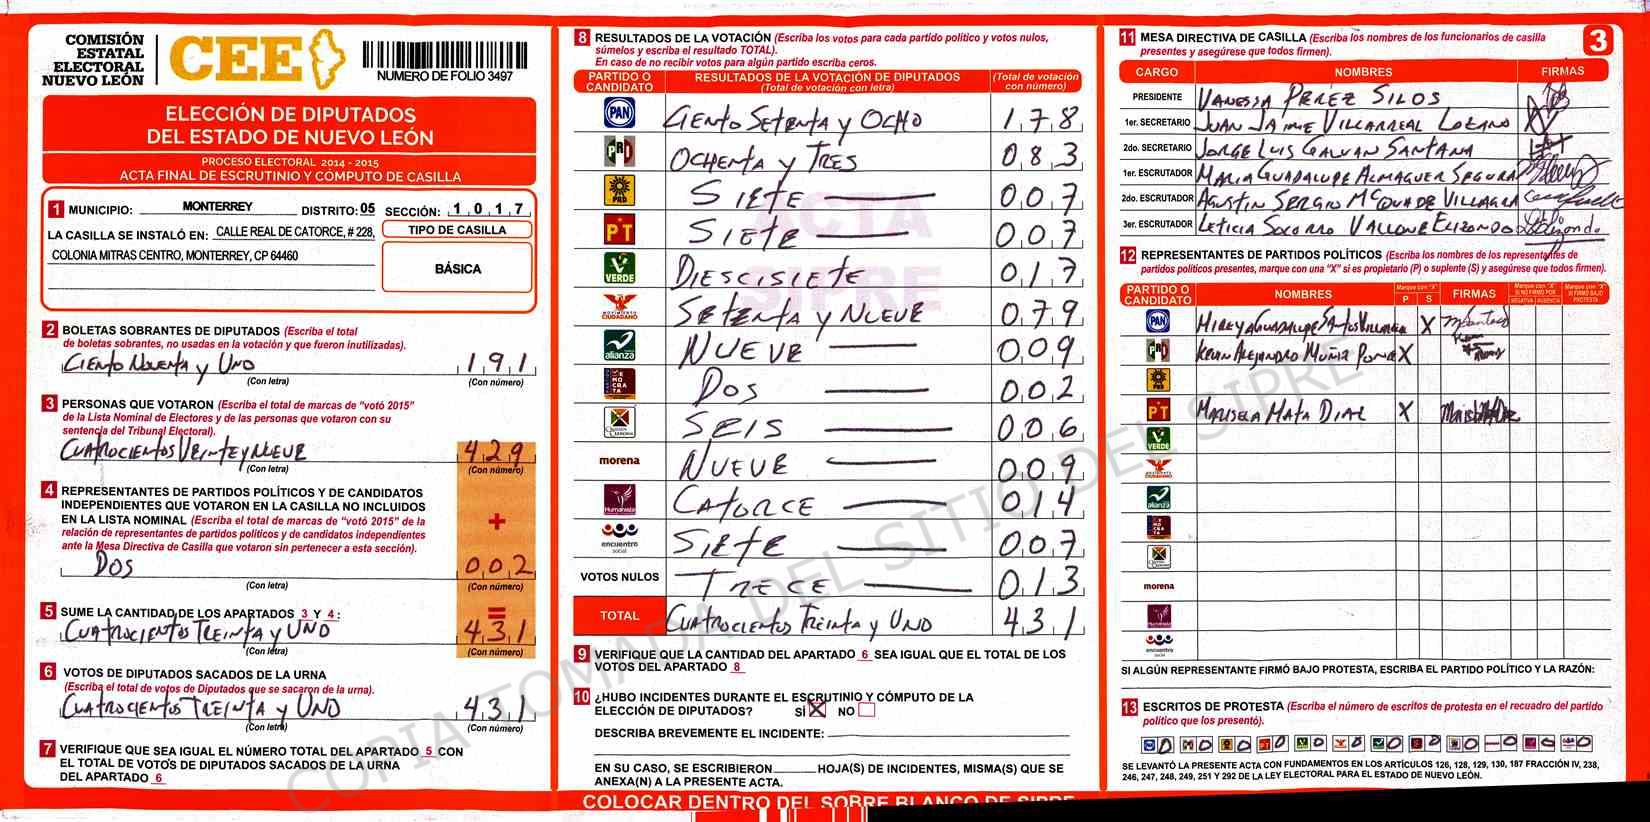 COMISIÓN
ESTATAL
ELECTORAL
NUEVO LEÓN
CEE
NUMERO DE FOLIO 3497
ELECCIÓN DE DIPUTADOS
DEL ESTADO DE NUEVO LEÓN
PROCESO ELECTORAL 2014 - 2015
ACTA FINAL DE ESCRUTINIO Y CÓMPUTO DE CASILLA
1 MUNICIPIO: MONTERREY DISTRITO: 05 SECCIÓN: 1017
LA CASILLA SE INSTALÓ EN: CALLE REAL DE CATORCE, # 228,
COLONIA MITRAS CENTRO, MONTERREY, CP 64460
TIPO DE CASILLA
BÁSICA
2 BOLETAS SOBRANTES DE DIPUTADOS (Escriba el total
de boletas sobrantes, no usadas en la votación y que fueron inutilizadas).
Ciento Noventa y Uno 191
(Con letra) (Con número)
3 PERSONAS QUE VOTARON (Escriba el total de marcas de "votó 2015"
de la Lista Nominal de Electores y de las personas que votaron con su
sentencia del Tribunal Electoral).
Cuatrocientos Veinteynueve 429
(Con letra) (Con número)
4 REPRESENTANTES DE PARTIDOS POLÍTICOS Y DE CANDIDATOS
INDEPENDIENTES QUE VOTARON EN LA CASILLA NO INCLUIDOS
EN LA LISTA NOMINAL (Escriba el total de marcas de "votó 2015" de la
relación de representantes de partidos políticos y de candidatos independientes
ante la Mesa Directiva de Casilla que votaron sin pertenecer a esta sección).
+
Dos 002
(Con letra) (Con número)
5 SUME LA CANTIDAD DE LOS APARTADOS 3 Y 4: =
Cuatrocientos Treinta y Uno 431
(Con letra) (Con número)
6 VOTOS DE DIPUTADOS SACADOS DE LA URNA
(Escriba el total de votos de Diputados que se sacaron de la urna).
Cuatrocientos Treinta y Uno 431
(Con letra) (Con número)
7 VERIFIQUE QUE SEA IGUAL EL NÚMERO TOTAL DEL APARTADO 5 CON
EL TOTAL DE VOTOS DE DIPUTADOS SACADOS DE LA URNA
DEL APARTADO 6
8 RESULTADOS DE LA VOTACIÓN (Escriba los votos para cada partido político y votos nulos,
súmelos y escriba el resultado TOTAL).
En caso de no recibir votos para algún partido escriba ceros.
PARTIDO O CANDIDATO RESULTADOS DE LA VOTACIÓN DE DIPUTADOS (Total de votación con letra) (Total de votación con número)
PAN Ciento Setenta y Ocho 178
PRI Ochenta y Tres 083
PRD Siete 007
PT Siete 007
VERDE Diescisiete 017
MOVIMIENTO CIUDADANO Setenta y Nueve 079
alianza Nueve 009
DEMOCRATA Dos 002
Seis 006
morena Nueve 009
Humanista Catorce 014
encuentro social Siete 007
VOTOS NULOS Trece 013
TOTAL Cuatrocientos Treinta y Uno 431
9 VERIFIQUE QUE LA CANTIDAD DEL APARTADO 6 SEA IGUAL QUE EL TOTAL DE LOS
VOTOS DEL APARTADO 8
10 ¿HUBO INCIDENTES DURANTE EL ESCRUTINIO Y CÓMPUTO DE LA
ELECCIÓN DE DIPUTADOS? SÍ X NO
DESCRIBA BREVEMENTE EL INCIDENTE:
EN SU CASO, SE ESCRIBIERON HOJA(S) DE INCIDENTES, MISMA(S) QUE SE
ANEXA(N) A LA PRESENTE ACTA.
COLOCAR DENTRO DEL SOBRE BLANCO DE SIPRE
11 MESA DIRECTIVA DE CASILLA (Escriba los nombres de los funcionarios de casilla
presentes y asegúrese que todos firmen).
3
CARGO NOMBRES FIRMAS
PRESIDENTE Vanessa Perez Silos
1er. SECRETARIO Juan Jaime Villarreal Lozano
2do. SECRETARIO Jorge Luis Galvan Santana
1er. ESCRUTADOR Maria Guadalupe Almaguer Segura
2do. ESCRUTADOR Agustin Sergio McQuade Villagra
3er. ESCRUTADOR Leticia Socorro Vallone Elizondo
12 REPRESENTANTES DE PARTIDOS POLÍTICOS (Escriba los nombres de los representantes de
partidos políticos presentes, marque con una "X" si es propietario (P) o suplente (S) y asegúrese que todos firmen).
PARTIDO O CANDIDATO NOMBRES Marque con "X" P S FIRMAS Marque con "X" SI NO FIRMÓ POR NEGATIVA AUSENCIA Marque con "X" SI FIRMÓ BAJO PROTESTA
PAN Mireya Guadalupe Santos X
PRI Kevin Alejandro Muñiz X
PRD
PT Marisela Mata Diaz X
VERDE
alianza
morena
Humanista
encuentro social
SI ALGÚN REPRESENTANTE FIRMÓ BAJO PROTESTA, ESCRIBA EL PARTIDO POLÍTICO Y LA RAZÓN:
13 ESCRITOS DE PROTESTA (Escriba el número de escritos de protesta en el recuadro del partido
político que los presentó).
0 0 0 0 0 0 0 0 0 0 0 0
SE LEVANTÓ LA PRESENTE ACTA CON FUNDAMENTOS EN LOS ARTÍCULOS 126, 128, 129, 130, 187 FRACCIÓN IV, 238,
246, 247, 248, 249, 251 Y 292 DE LA LEY ELECTORAL PARA EL ESTADO DE NUEVO LEÓN.
ACTA
SIPRE
COPIA TOMADA DEL SITIO DEL SIPRE